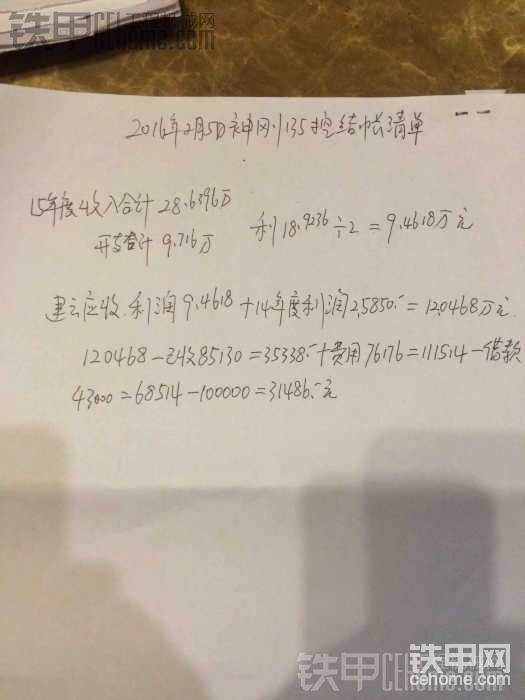 铁甲网
cehome.com
2016年2月5日神冈135挖结帐清单
15年度收入合计28.6396万
开支合计9.716万 利18.9236÷2=9.4618万元
建云应收利润9.4618+14年度利润2.5850=12.0468万元
120468-已收85130=35338+费用76176=111514-借款
43000=68514-100000=31486元
铁甲网
cehome.com
铁甲网
cehome.com